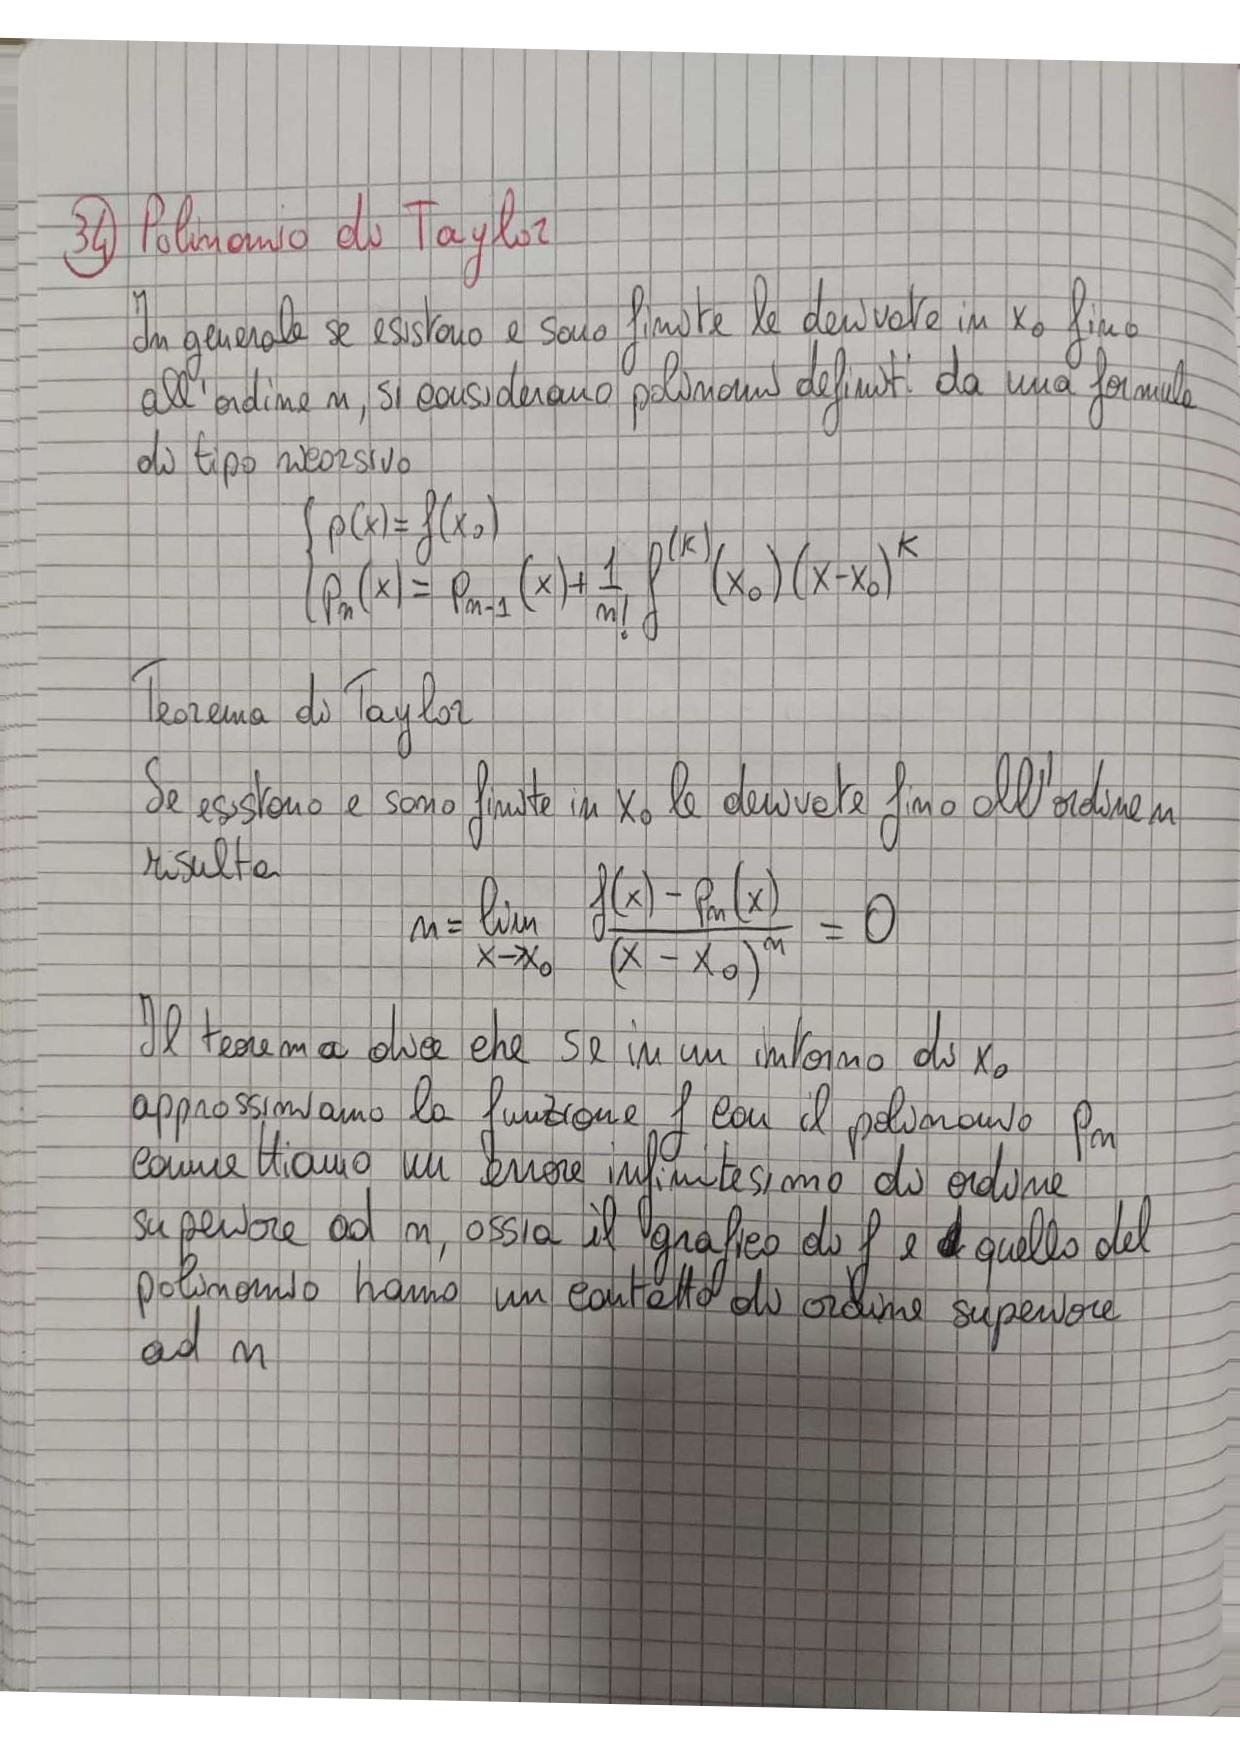 34) Polinomio di Taylor
In generale se esistono e sono finite le derivate in x₀ fino
all'ordine n, si considerano polinomi definiti da una formula
di tipo ricorsivo
{ p(x) = f(x₀)
{ pₙ(x) = pₙ₋₁(x) + 1/n! f^(k) (x₀) (x-x₀)^k
Teorema di Taylor
Se esistono e sono finite in x₀ le derivate fino all'ordine n
risulta
n = lim x→x₀ f(x) - pₙ(x) / (x - x₀)^n = 0
Il teorema dice che se in un intorno di x₀
approssimiamo la funzione f con il polinomio pₙ
commettiamo un errore infinitesimo di ordine
superiore ad n, ossia il grafico di f e quello del
polinomio hanno un contatto di ordine superiore
ad n